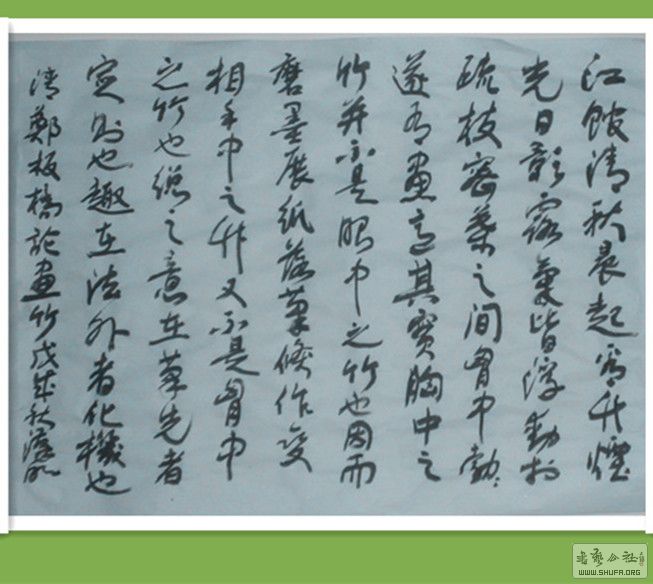 江館清秋晨起看竹煙
光日影露氣皆浮動於
疏枝密葉之間胸中勃々
遂有畫意其實胸中之
竹并不是眼中之竹也因而
磨墨展紙落筆倏作變
相手中之竹又不是胸中
之竹也總之意在筆先者
定則也趣在法外者化機也
清鄭板橋論畫竹戊戌秋
書藝公社
WWW.SHUFA.ORG